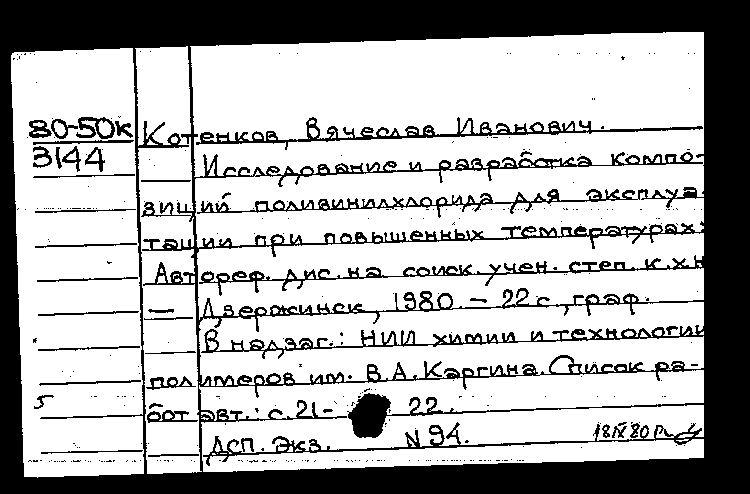 80-50к Котенков, Вячеслав Иванович.
3144 Исследование и разработка компо-
зиций поливинилхлорида для эксплуа-
тации при повышенных температурах:
Автореф. дис. на соиск. учен. степ. к.х.н
— Дзержинск, 1980. – 22 с., граф.
В надзаг.: НИИ химии и технологии
полимеров им. В.А. Каргина. Список ра-
5 бот авт.: с. 21- 22.
ДСП. Экз. N 94. 18 IX 80